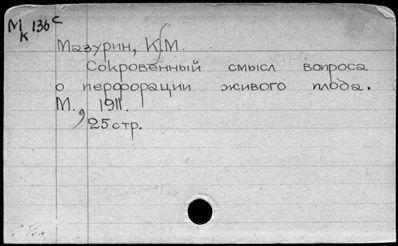 М 136 с
к
Мазурин, К.М.
Сокровенный смысл вопроса
о перфорации живого плода.
М., 1911.
25 стр.